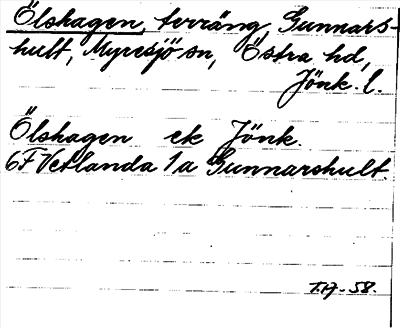 Ölshagen, terräng, Gunnars-
hult, Myresjö sn, Östra hd,
Jönk. l.
Ölshagen ek Jönk.
6F Vetlanda 1 a Gunnarshult.
T.A-58.